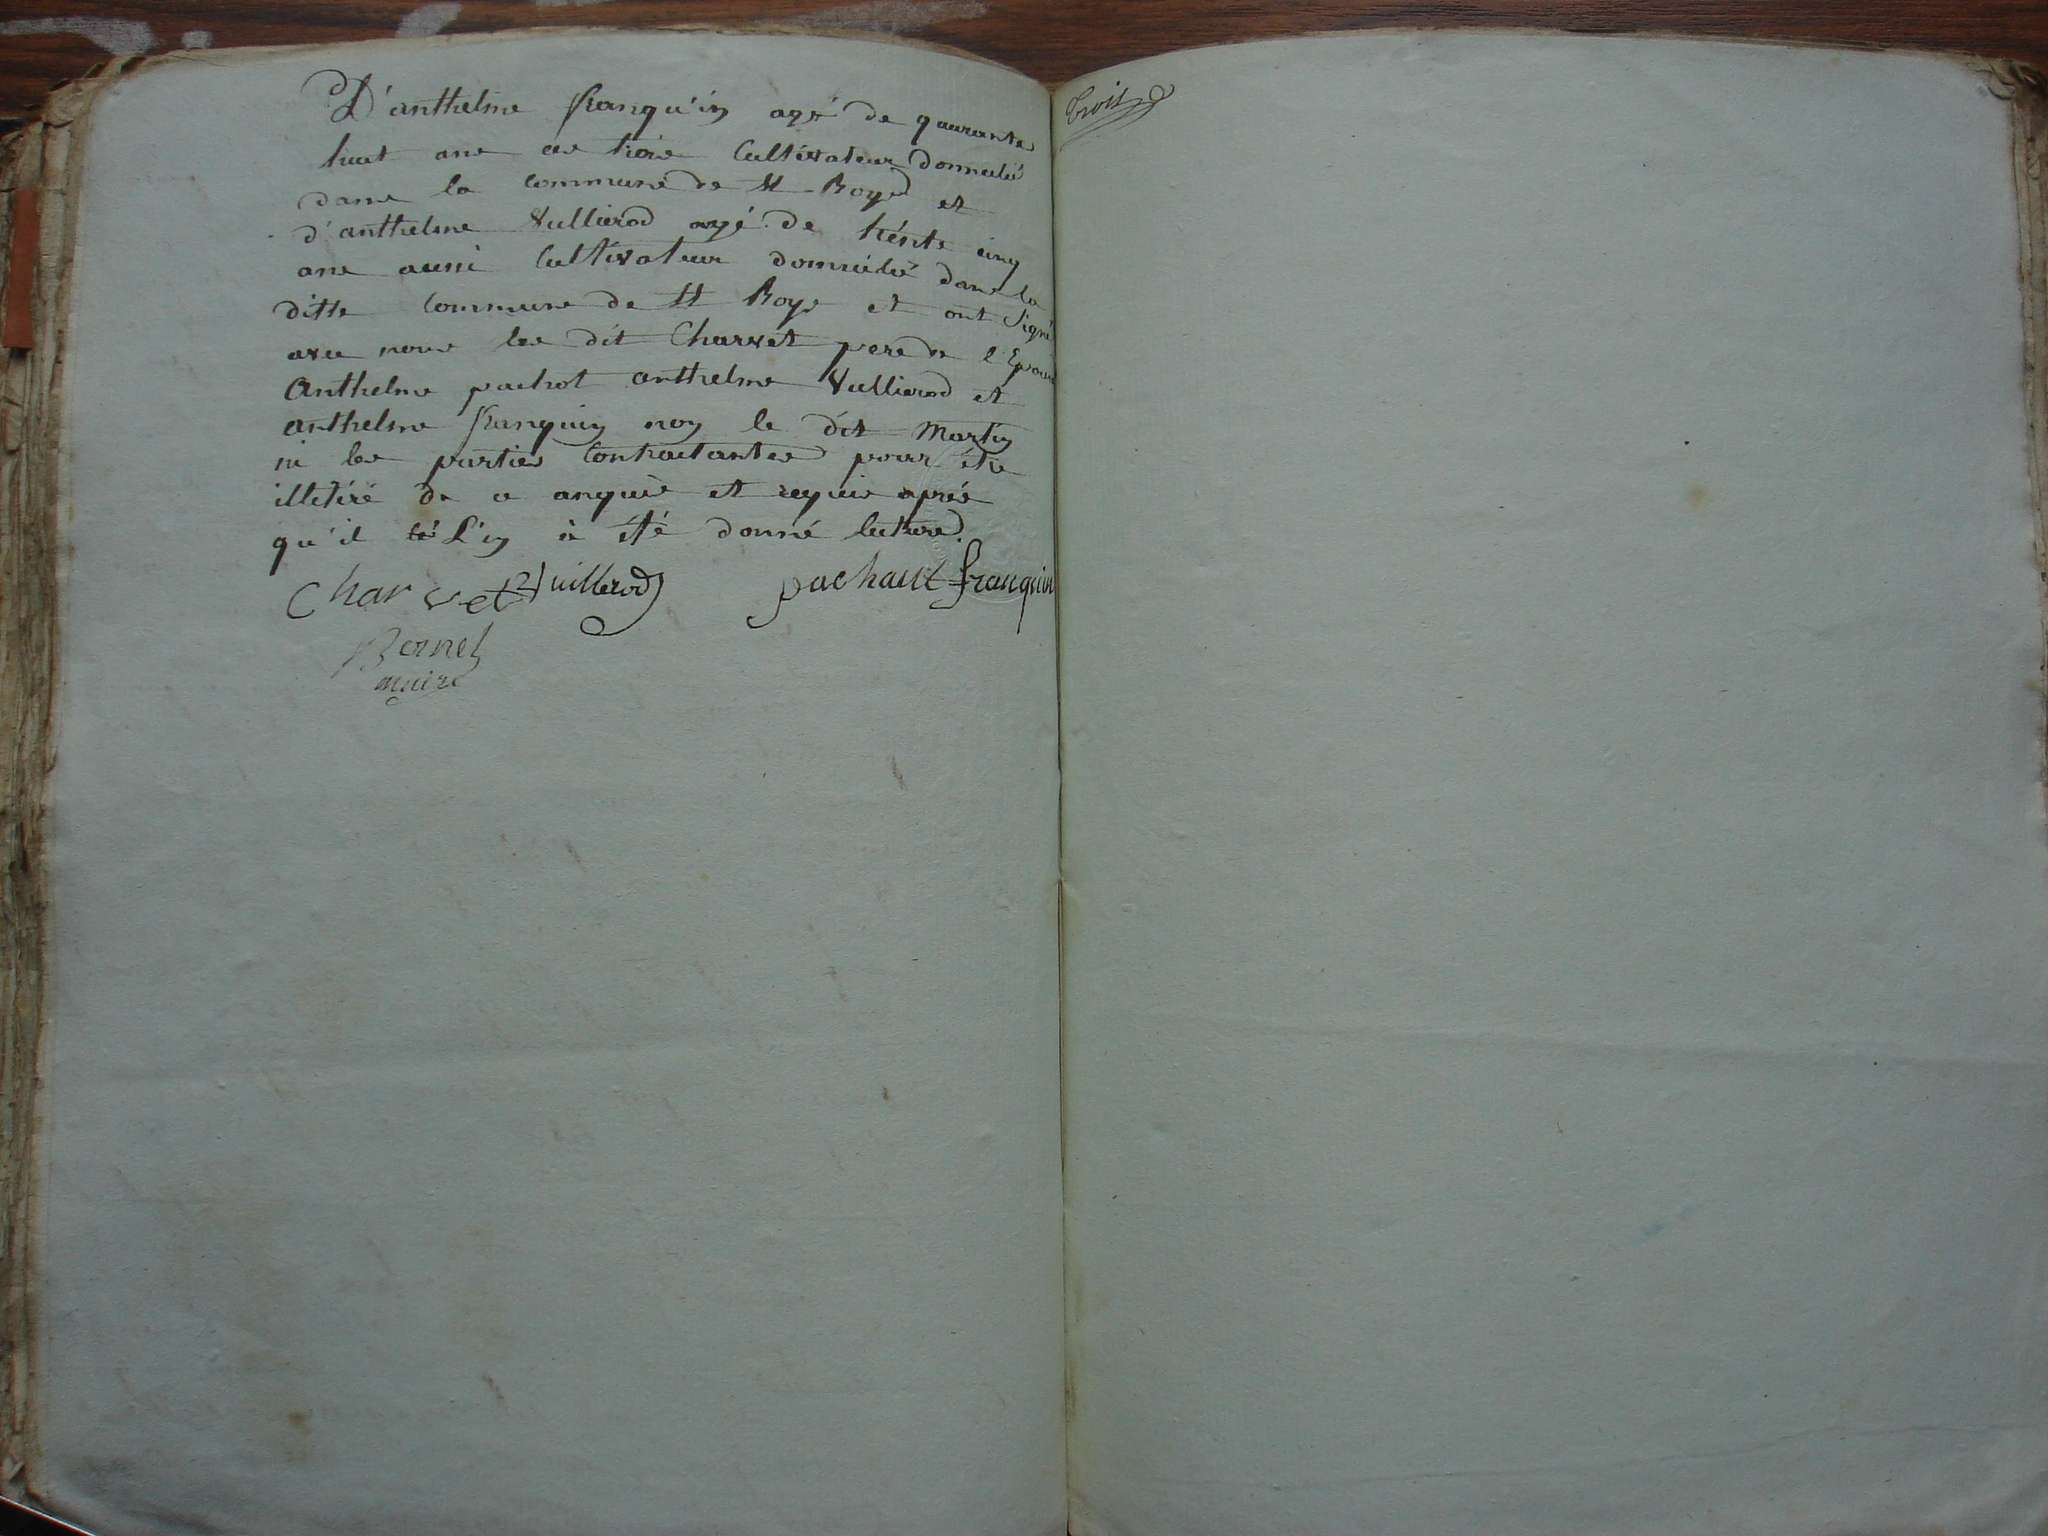 D'anthelme franqu'in agé de quarante
huit ans  trois Cultivateur domicilié
dans la Commune de St Boys et
d'anthelme Vullierod agé de trénte cinq
ans aussi Cultivateur domicilié dans la
ditte Commune de St Boys et ont signé
avec nous les dit Charvet pere de l'Epoux
Anthelme pachot anthelme Vullierod et
anthelme franquin non le dit Martin
ni les parties Contractantes pour être
illetiré de ce enquis et requis aprés
qu'il L'in à été donné lecture.
Charvet Vuillerod pachaut franquin
Bornet
maire
trois